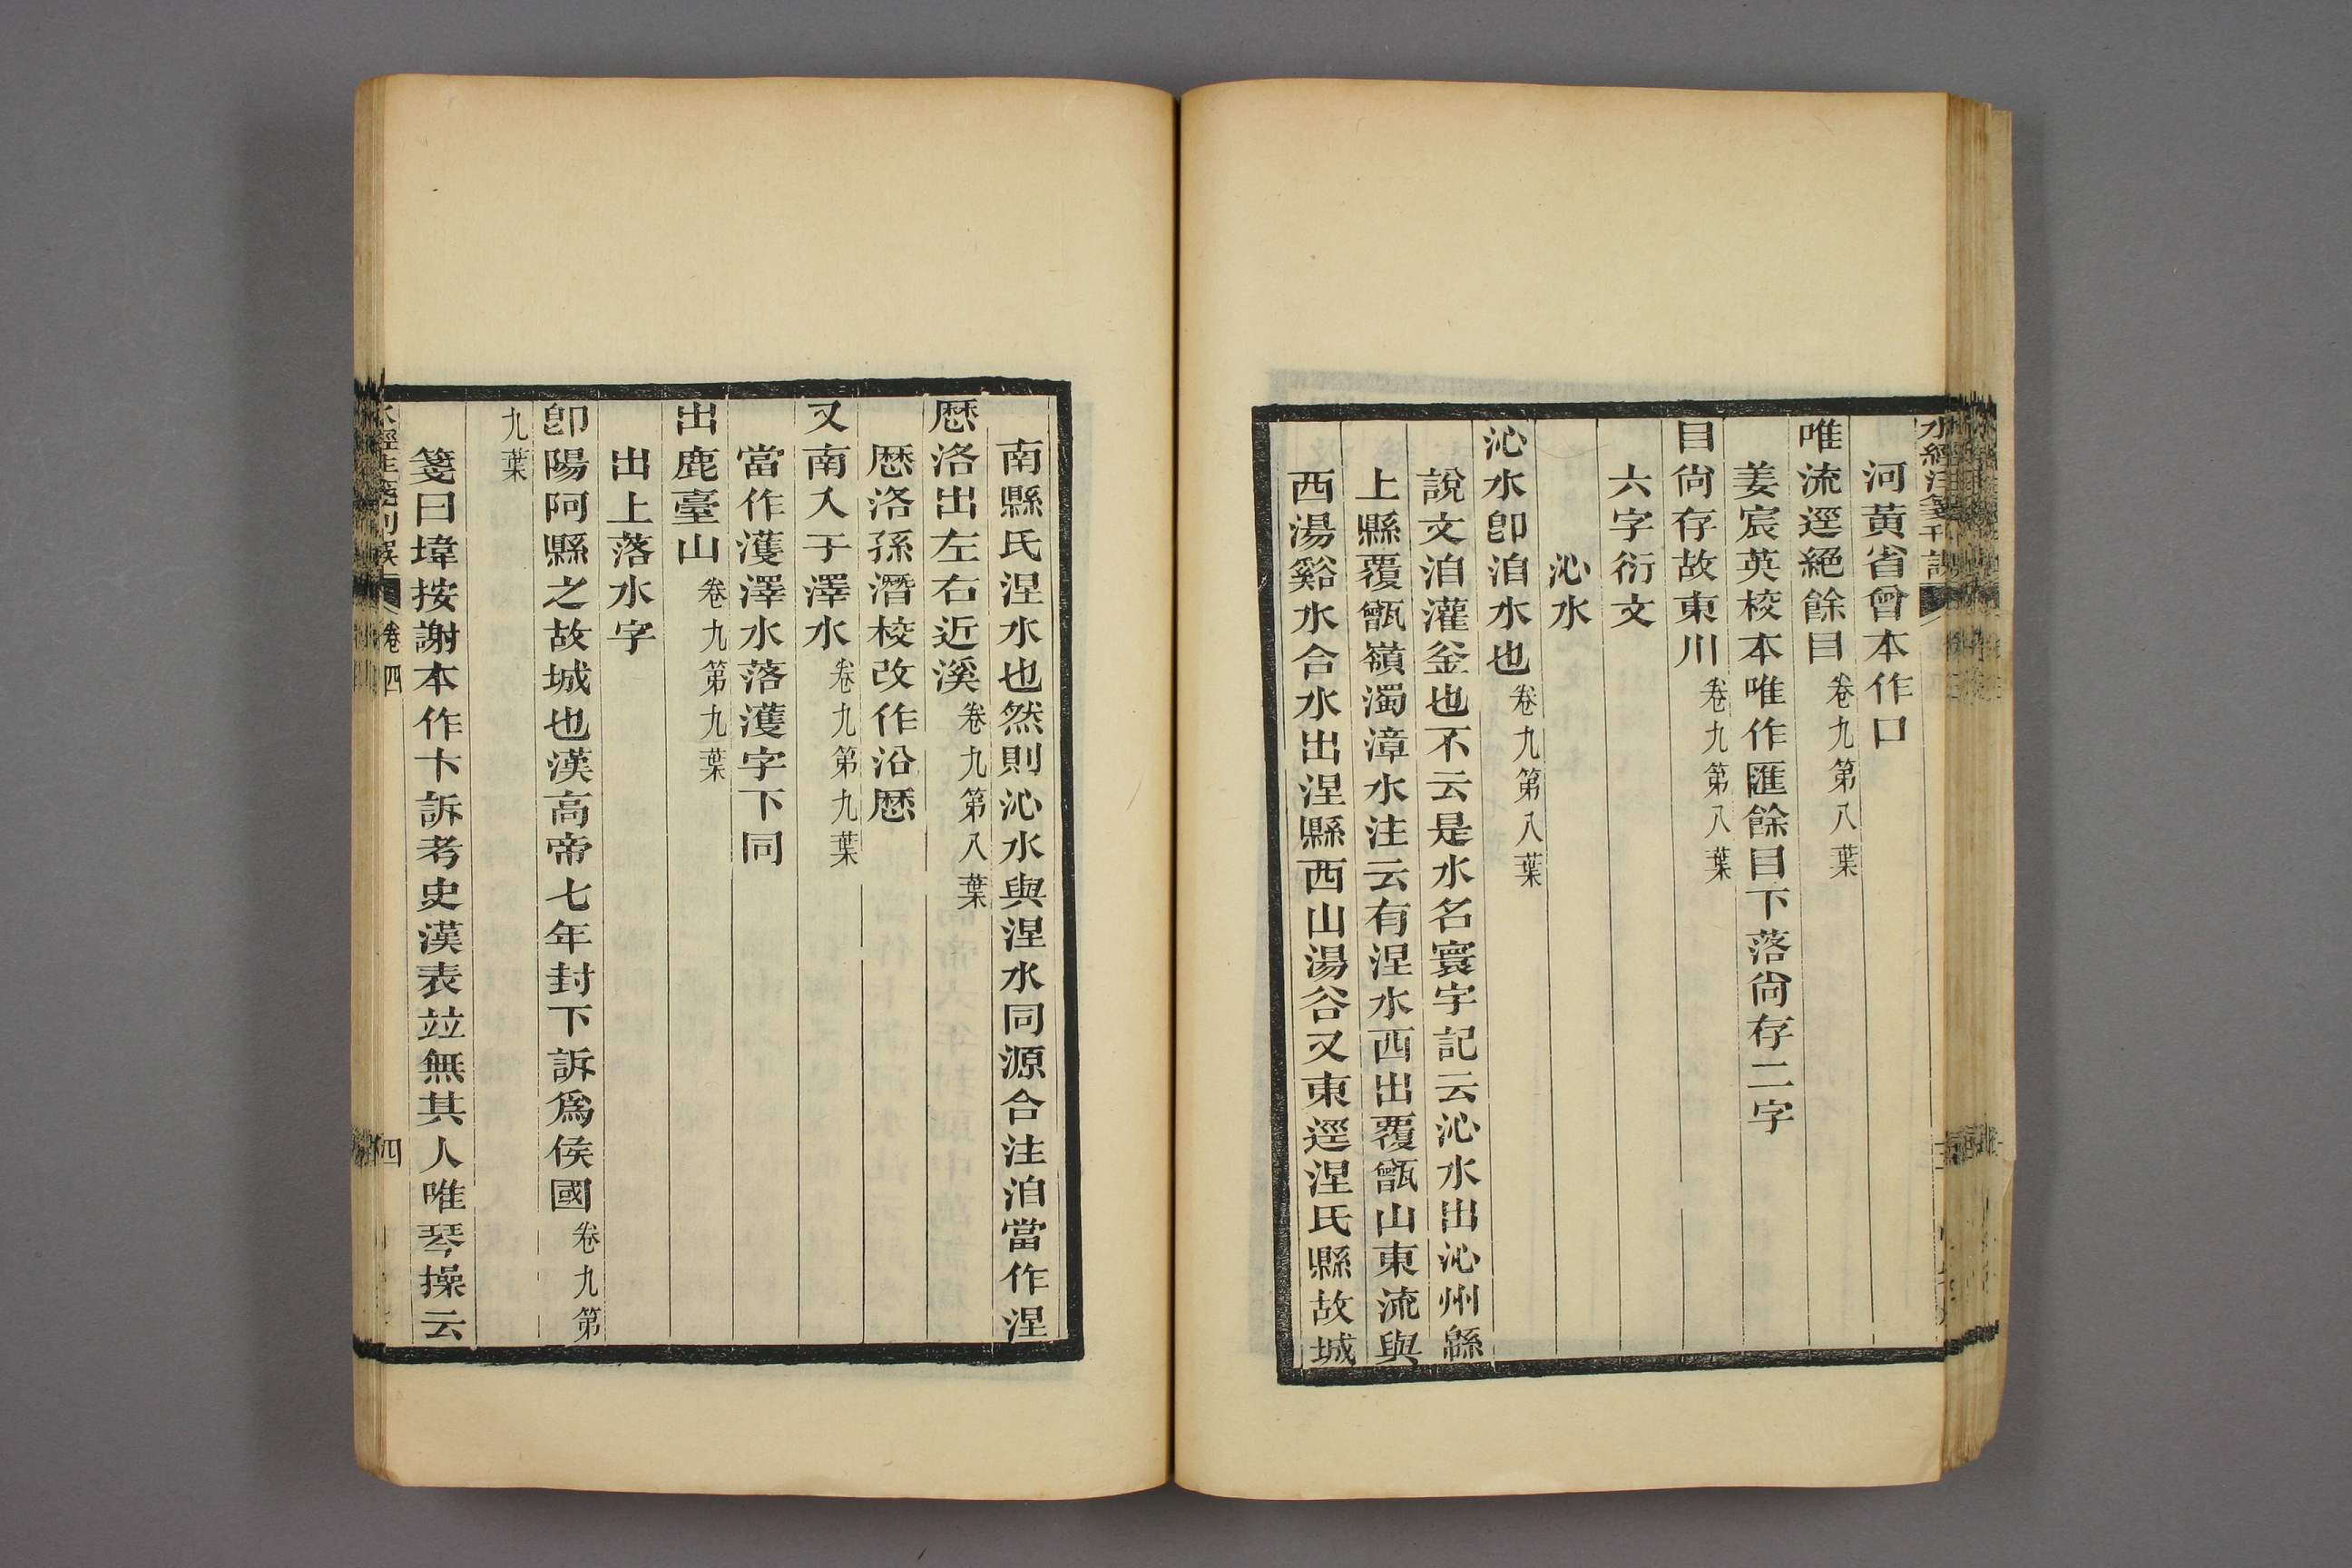 水經注箋刊誤
河黃省曾本作口
唯流逕絕餘目卷九第八葉
姜宸英校本唯作匯餘目下落尙存二字
目尙存故東川卷九第八葉
六字衍文
沁水
沁水卽洎水也卷九第八葉
說文洎灌釜也不云是水名寰宇記云沁水出沁州緜
上縣覆甑嶺濁漳水注云有涅水西出覆甑山東流與
西湯谿水合水出涅縣西山湯谷又東逕涅氏縣故城
南縣氏涅水也然則沁水與涅水同源合注洎當作涅
歷洛出左右近溪卷九第八葉
歷洛孫潛校改作沿歷
又南入于澤水卷九第九葉
當作濩澤水落濩字下同
出鹿臺山卷九第九葉
出上落水字
卽陽阿縣之故城也漢高帝七年封下訴爲侯國卷九第
九葉
箋曰㙔按謝本作卞訴考史漢表竝無其人唯琴操云
水經注箋刊誤 卷四 四